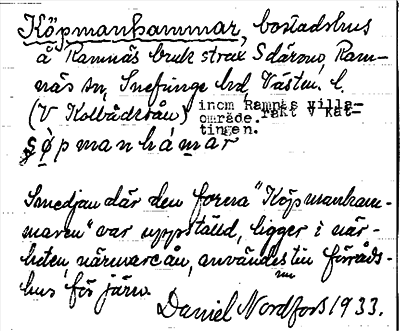 Köpmanhammar, bostadshus
å Ramnäs bruk strax S därom, Ram-
näs sn, Snefringe hd, Västm. l.
(V Kolbäcksån) inom Ramnäs villa-
område. rakt V kat-
tingen.
şø̀pmanhámar
Smedjan där den förra "Köpmanham-
maren" var uppställd, ligger i när-
heten, närmare ån, användes till förråds-
hus för järn.
nu
Daniel Nordfors 1933.